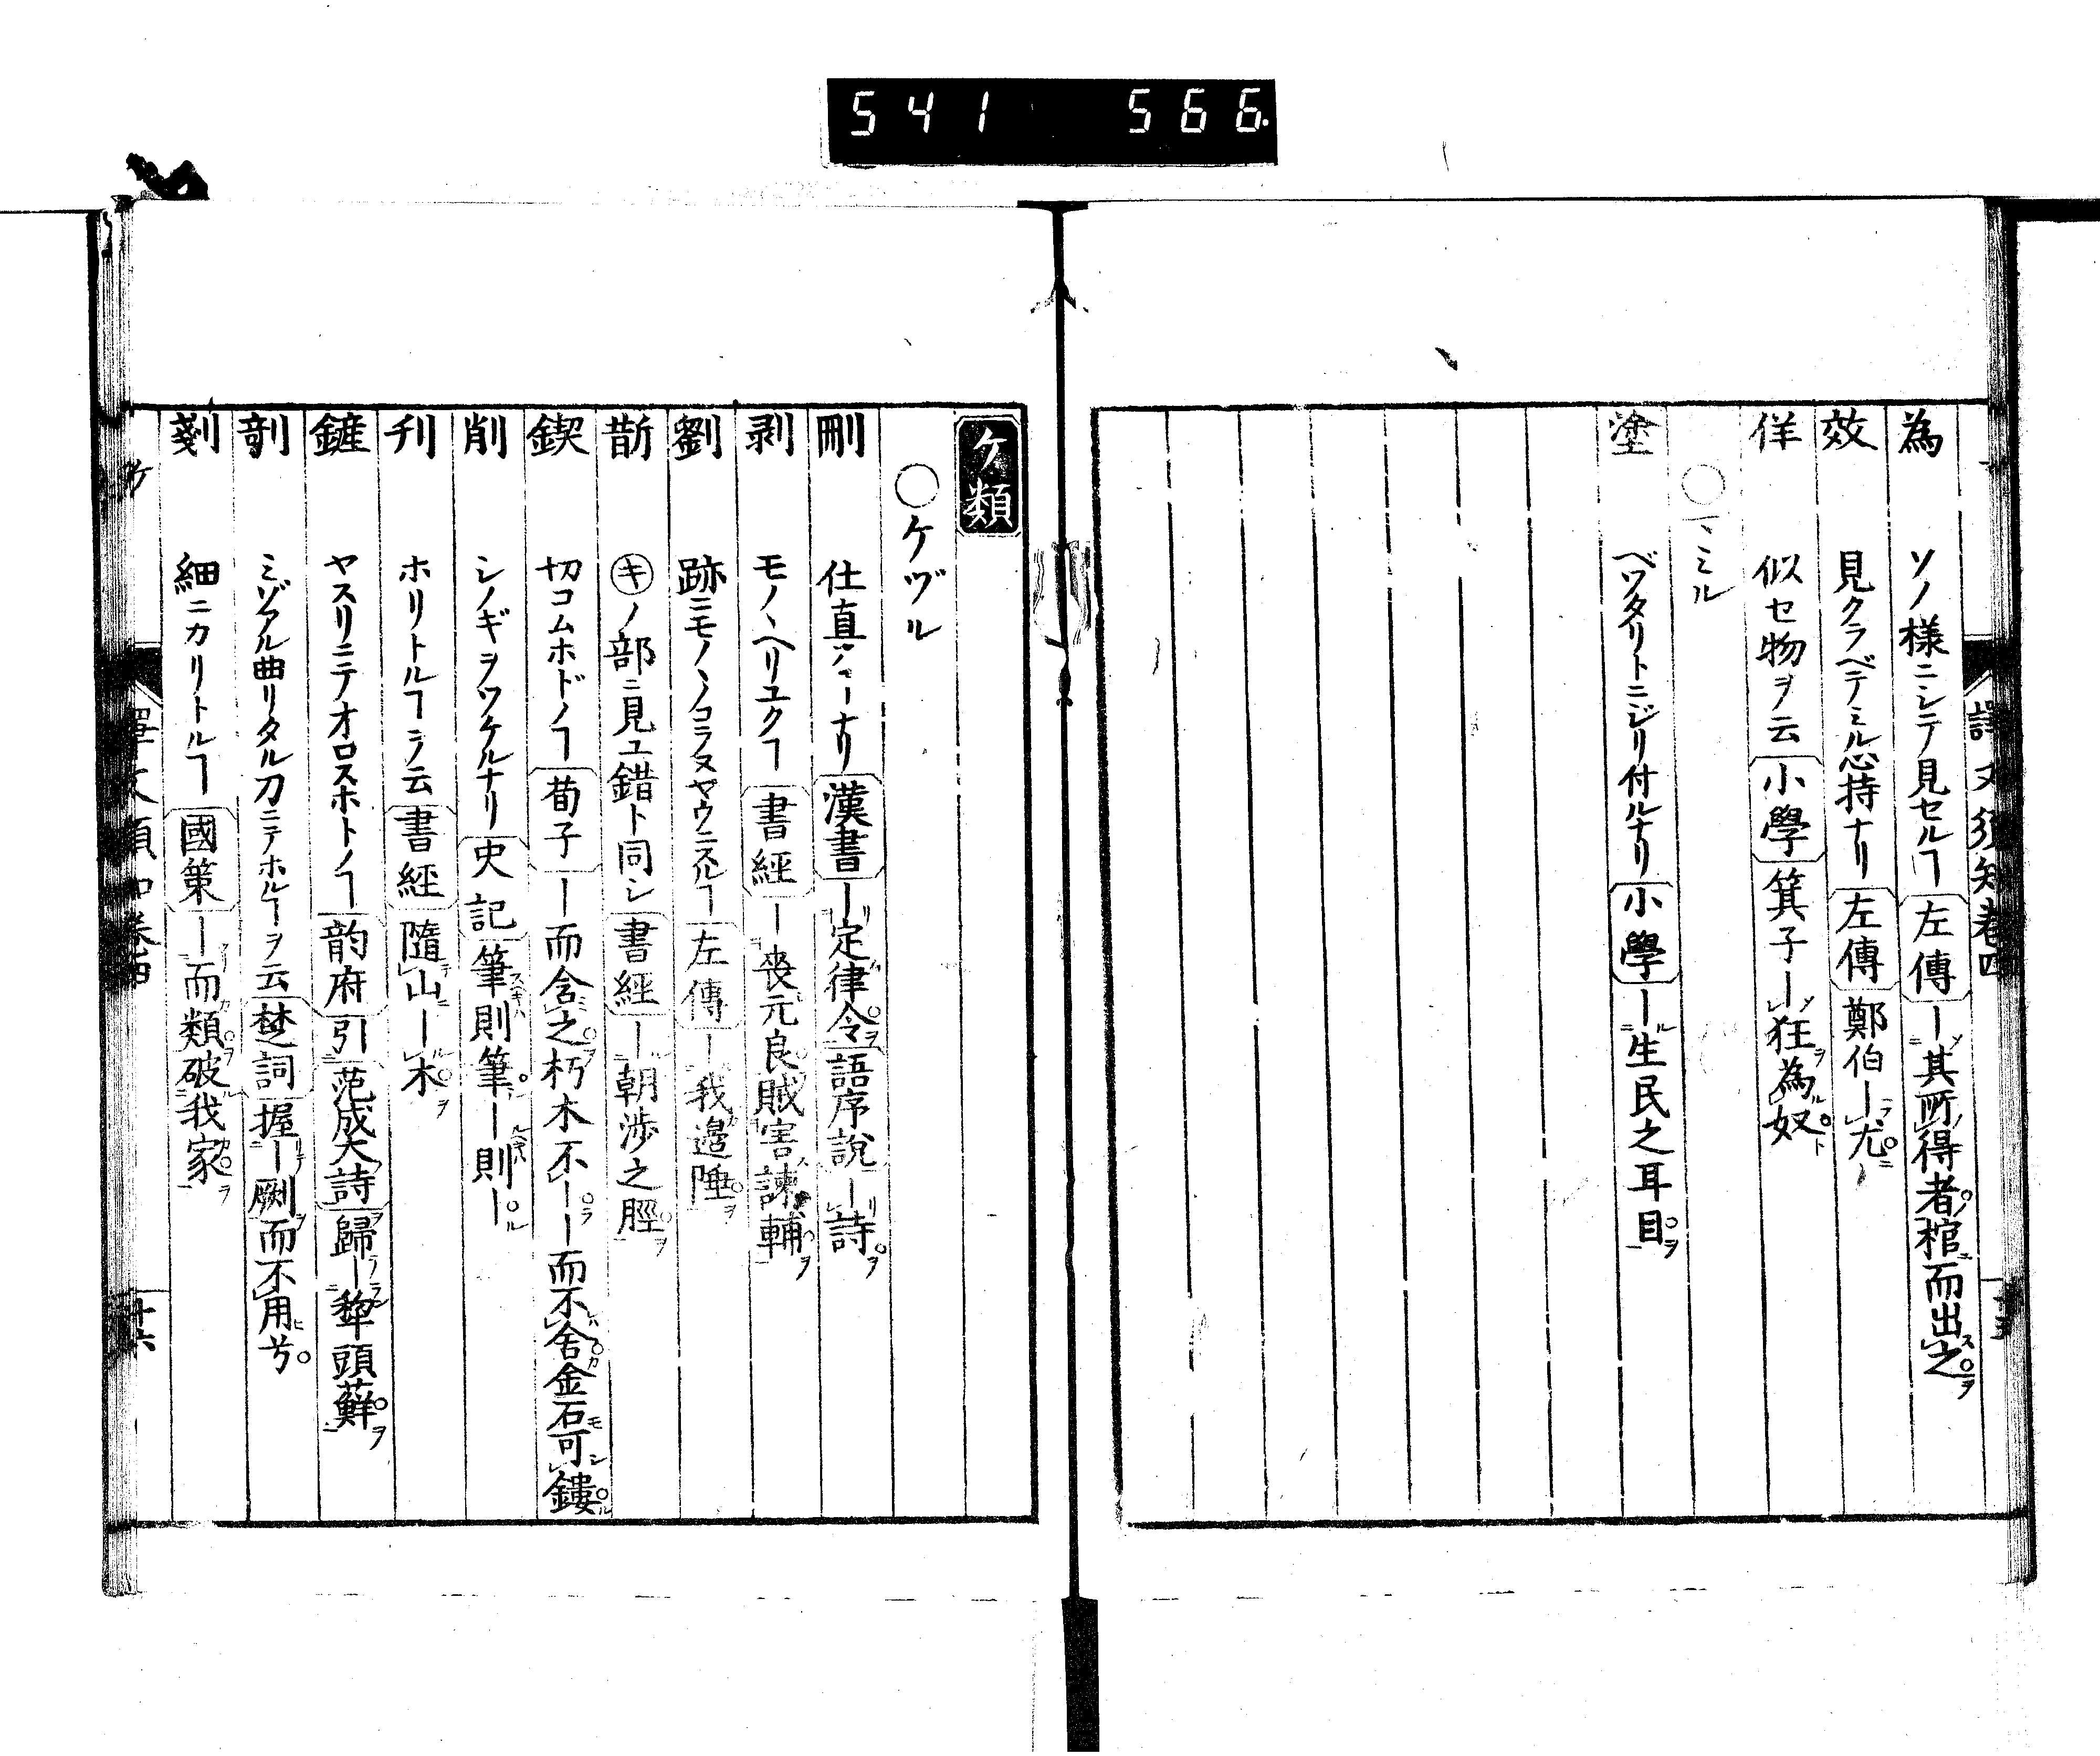 541 566
譯文須知卷四
為 ソノ様ニシテ見セルヿ 左傳 ー其所得者棺而出之
效 見クラベテミル心持ナリ 左傳 鄭伯ー尤
佯 似セ物ヲ云 小學 箕子ー狂為奴
ミル
塗 ベツタリトニジリ付ルナリ 小學 ー生民之耳目
十五
ケ類
○ケヅル
刪 仕直ナリ 漢書 ー定律令 語序說 ー詩
剥 モノヽヘリユクヿ 書經 ー喪元良賊害諫輔
劉 跡ニモノヽノコラヌヤウニスルヿ 左傳 ー我邉陲
斮 キノ部ニ見ユ錯ト同シ 書經 ー朝渉之脛
鍥 切コムホドノヿ 荀子 ー而舎之朽木不ーー而不舎金石可鏤
削 シノギヲワケルナリ 史記 筆則筆ー則ー
刊 ホリトルヿヲ云 書經 隨山ー木
鏟 ヤスリニテオロスホトノヿ 韵府 引 范成大詩 歸ー犂頭蘚
剞 ミゾアル曲リタル刀ニテホルヿヲ云 楚詞 握ー劂而不用兮
剗 細ニカリトルヿ 國策 ー而類破我家
譯文須知卷四
ケ
十六